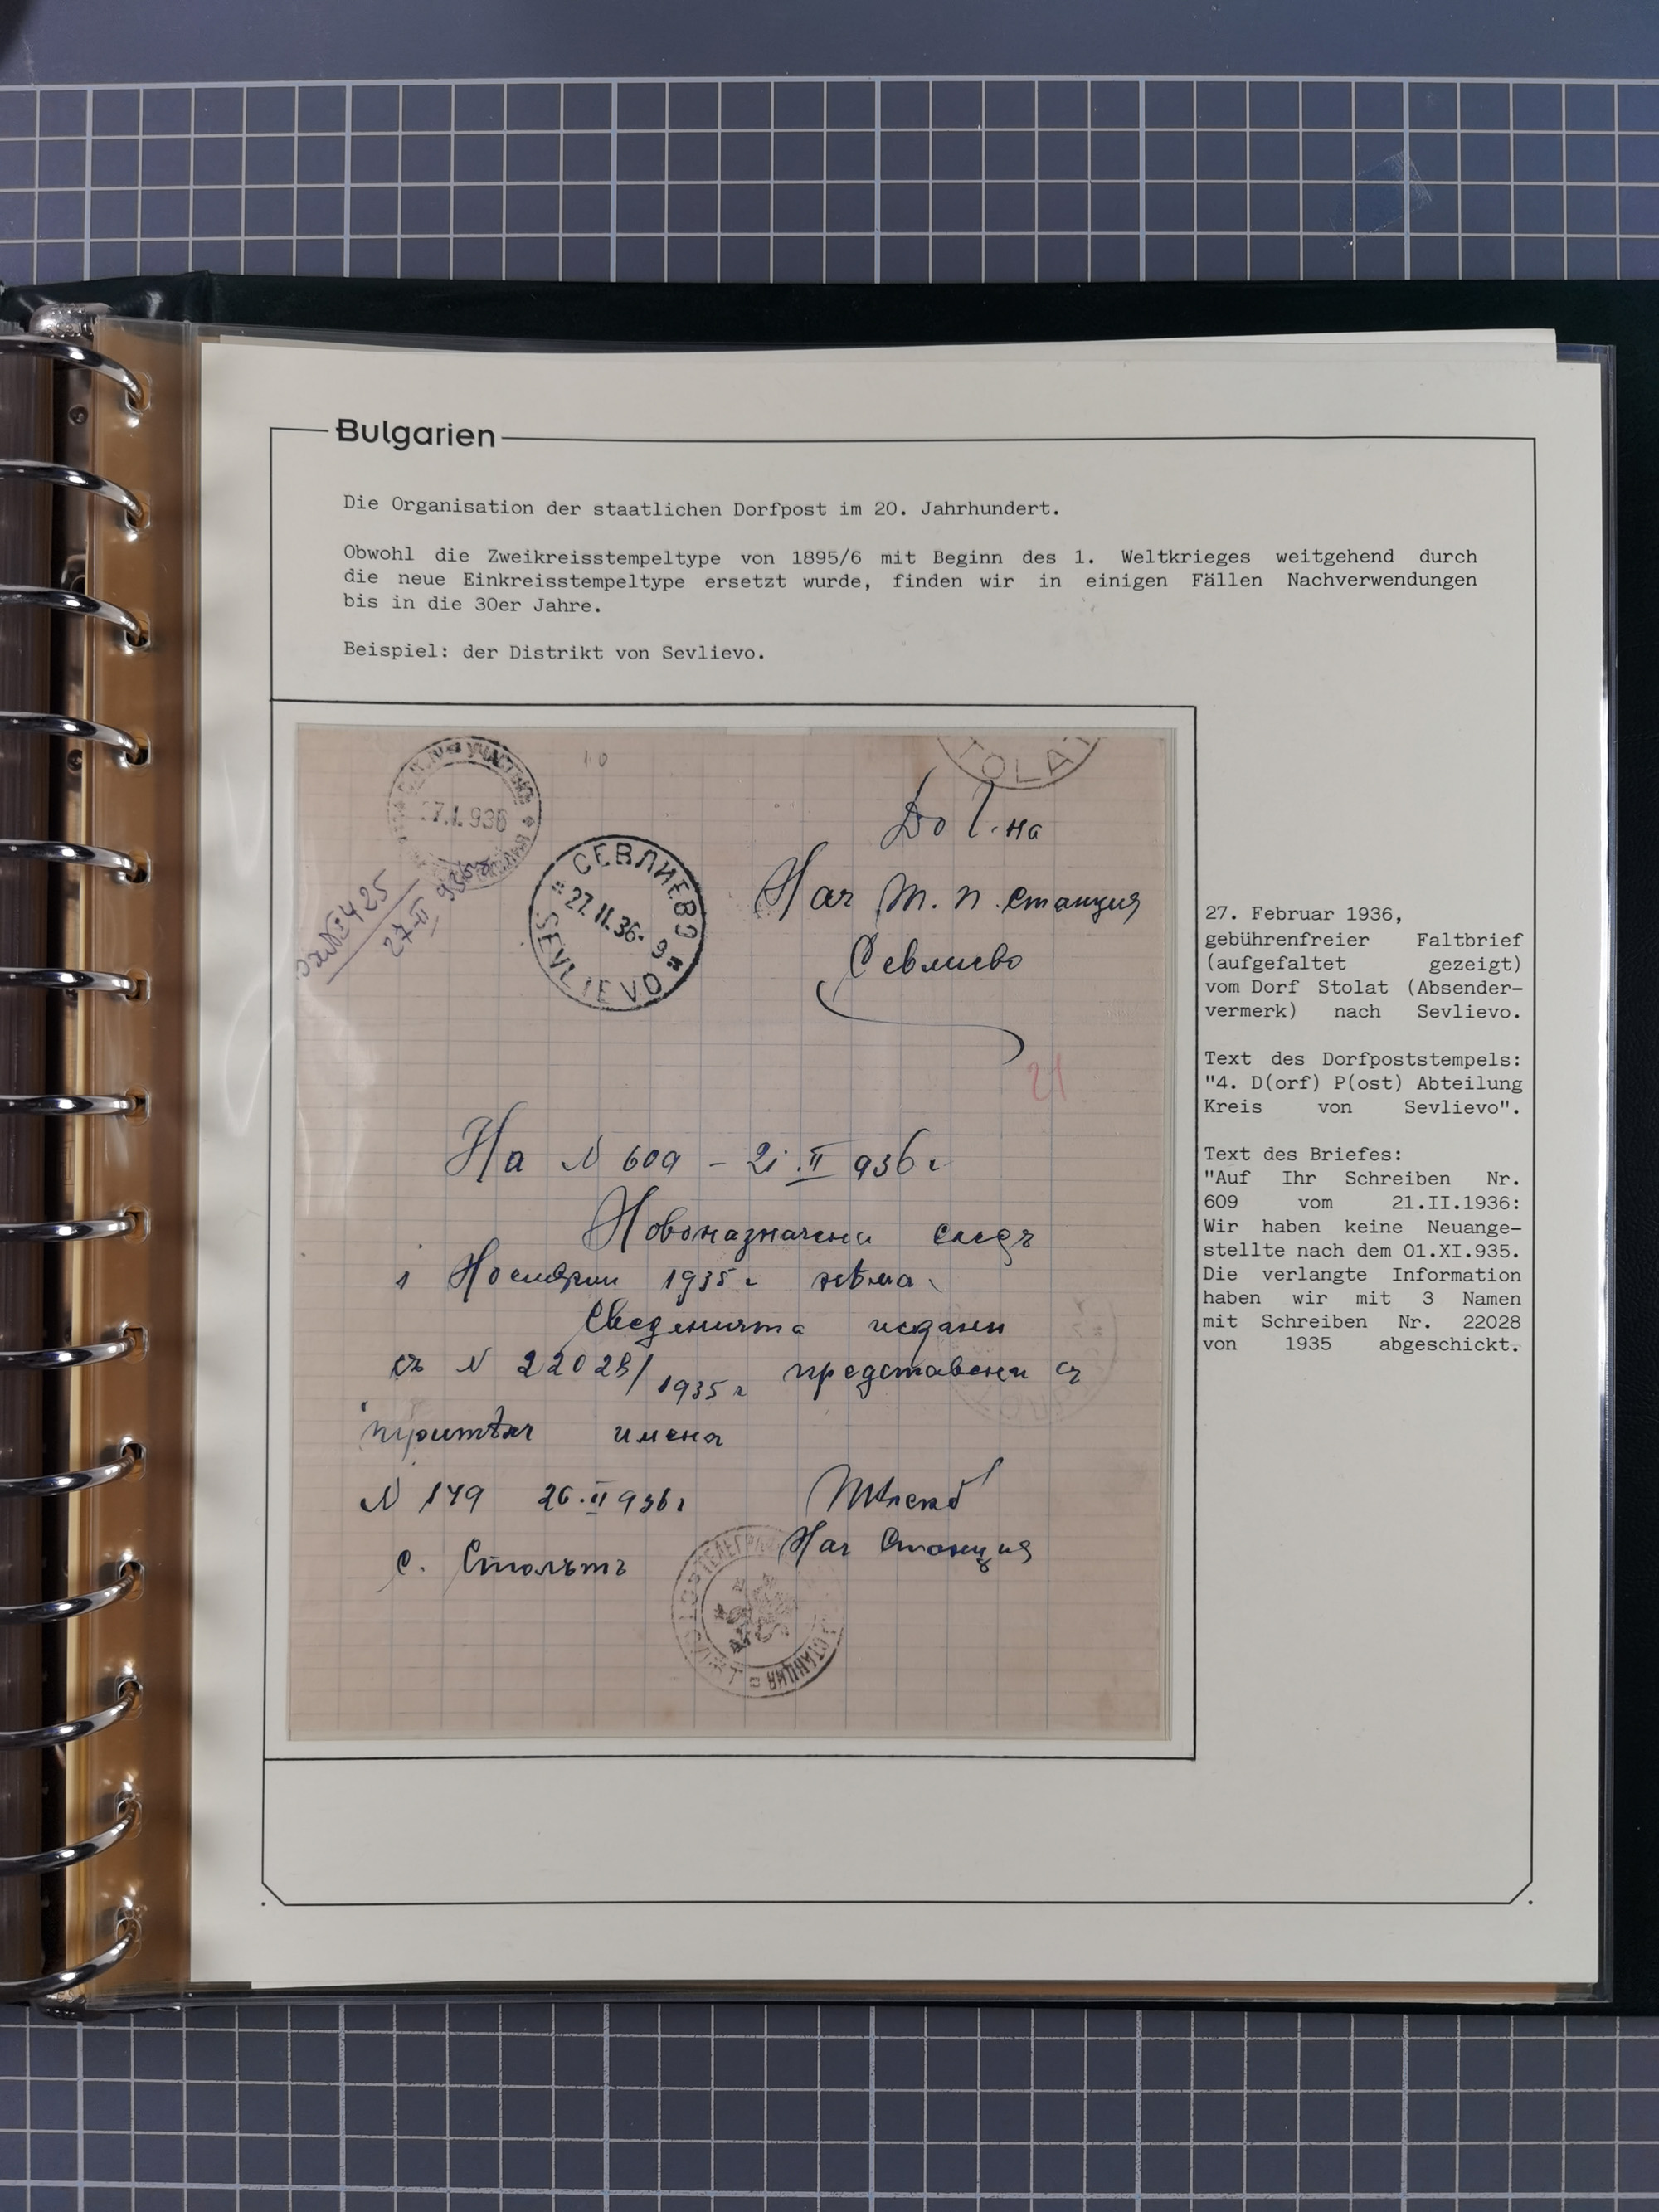 Bulgarien
Die Organisation der staatlichen Dorfpost im 20. Jahrhundert.
Obwohl die Zweikreisstempeltype von 1895/6 mit Beginn des 1. Weltkrieges weitgehend durch
die neue Einkreisstempeltype ersetzt wurde, finden wir in einigen Fällen Nachverwendungen
bis in die 30er Jahre.
Beispiel: der Distrikt von Sevlievo.
TOLA
СЕВЛИЕВО
27.II.36-9
SEVLIEVO
425
27-II 936
До Г-на
Нач Т. П. Станция
Севлиево
21
На N 609 - 21.II 936 г
Новоназначени следъ
1 Ноемврий 1935 г нѣма.
Сведенията искани
съ N 22028/1935 г представени съ
имена
N 179 26.II 936 г
Нач Станция
с. Столътъ
СТАНЦИЯ
27. Februar 1936,
gebührenfreier Faltbrief
(aufgefaltet gezeigt)
vom Dorf Stolat (Absender-
vermerk) nach Sevlievo.
Text des Dorfpoststempels:
"4. D(orf) P(ost) Abteilung
Kreis von Sevlievo".
Text des Briefes:
"Auf Ihr Schreiben Nr.
609 vom 21.II.1936:
Wir haben keine Neuange-
stellte nach dem 01.XI.935.
Die verlangte Information
haben wir mit 3 Namen
mit Schreiben Nr. 22028
von 1935 abgeschickt.